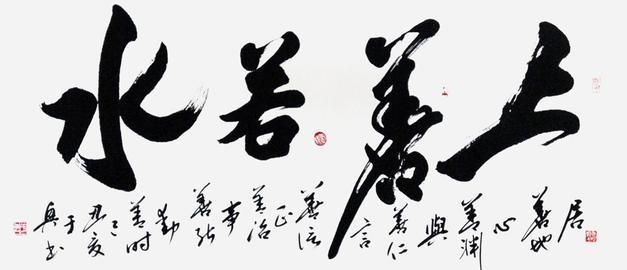 上善若水
居善地心善渊與善仁言善信正善治事善能動善时
己丑夏于